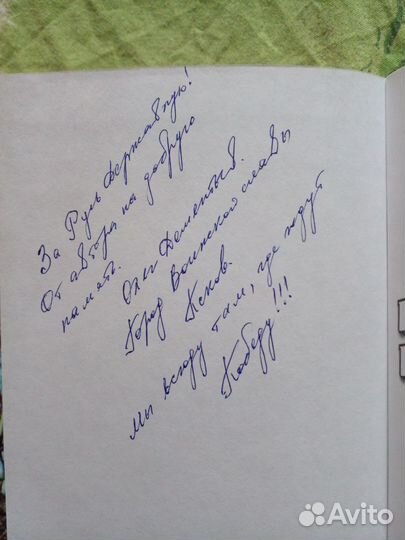 За Русь Державную!
От автора на добрую
память.
Олег Дементьев.
Город Воинской славы
Псков.
Мы всюду там, где ждут
Победу!!!
Avito